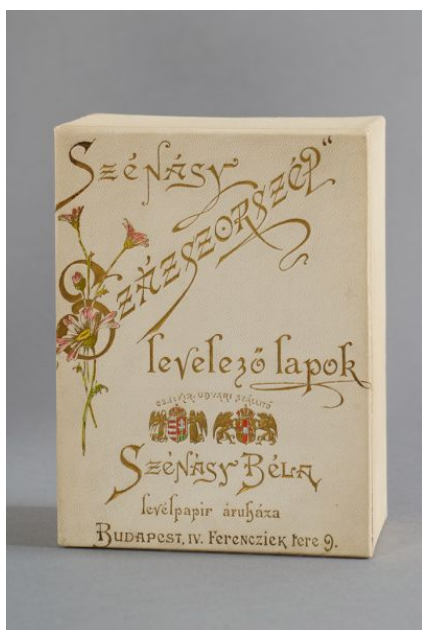 Szénásy
Százszorszép“
levelező lapok
CS. ÉS KIR. UDVARI SZÁLLITÓ
Szénásy Béla
levélpapir áruháza
Budapest, IV. Ferencziek tere 9.